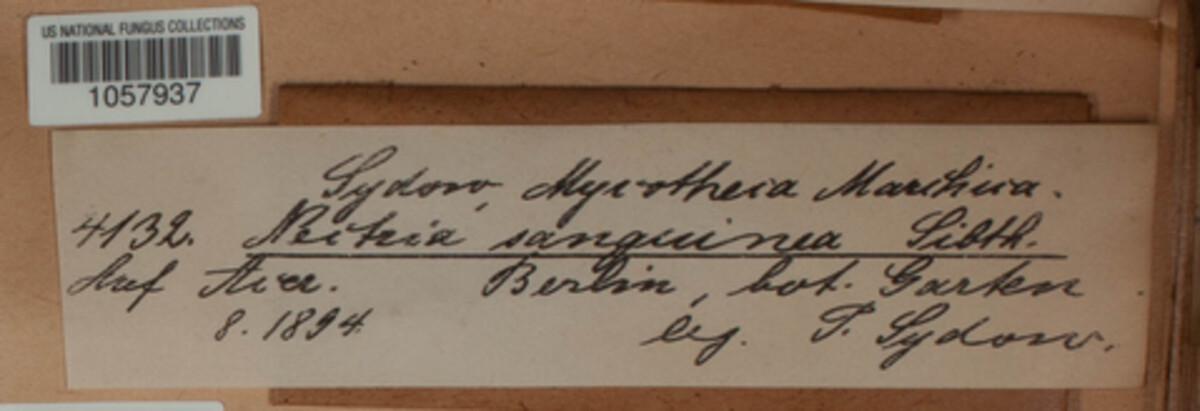 US NATIONAL FUNGUS COLLECTIONS
1057937
Sydow, Mycotheca Marchica.
4132. Nectria sanguinea Sibth.
Auf Acer. Berlin, bot. Garten.
8. 1894. leg. P. Sydow.